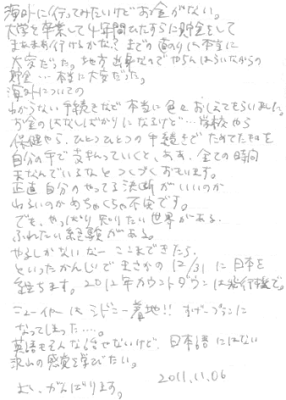 海外に行ってみたいけどお金がない。
大学を卒業して4年間ひたすらに貯金をして
まあまあ行けるかな?までの道のりは本当に
大変だった。地方出身なので やらんはらいながらの
貯金…本当に大変だった。
海外についての
わからない手続きなど本当に色々おしえてもらいました。
お金のはなしばかりになるけど…学校やら
保険やら、ひとつひとつの手続きで ためてたお金を
自分の手で支払っていくと、ああ、全ての時間
まなんでいるなとつくづくおもいます。
正直自分のやってる決断がいいのか
わるいのかめちゃくちゃ不安です。
でも、やっぱり知りたい世界がある。
ふれたい経験がある。
やるしかないなー ここまできたら、
といったかんじで まさかの12/31に日本を
経ちます。2012年カウントダウンは飛行機で。
ニューイヤーはシドニー着地!! すげープランに
なってしまった....。
英語もそんな話せないけど、日本語にはない
沢山の感覚を学びたい。
よし、がんばります。
2011.11.06